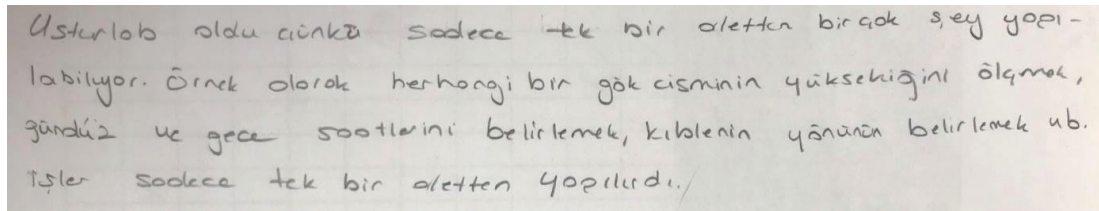 Usturlab oldu çünkü sadece tek bir aletten birçok şey yapı-
labiliyor. Örnek olarak herhangi bir gök cisminin yüksekliğini ölçmek,
gündüz ve gece saatlerini belirlemek, kıblenin yönünün belirlemek vb.
işler sadece tek bir aletten yapılırdı.